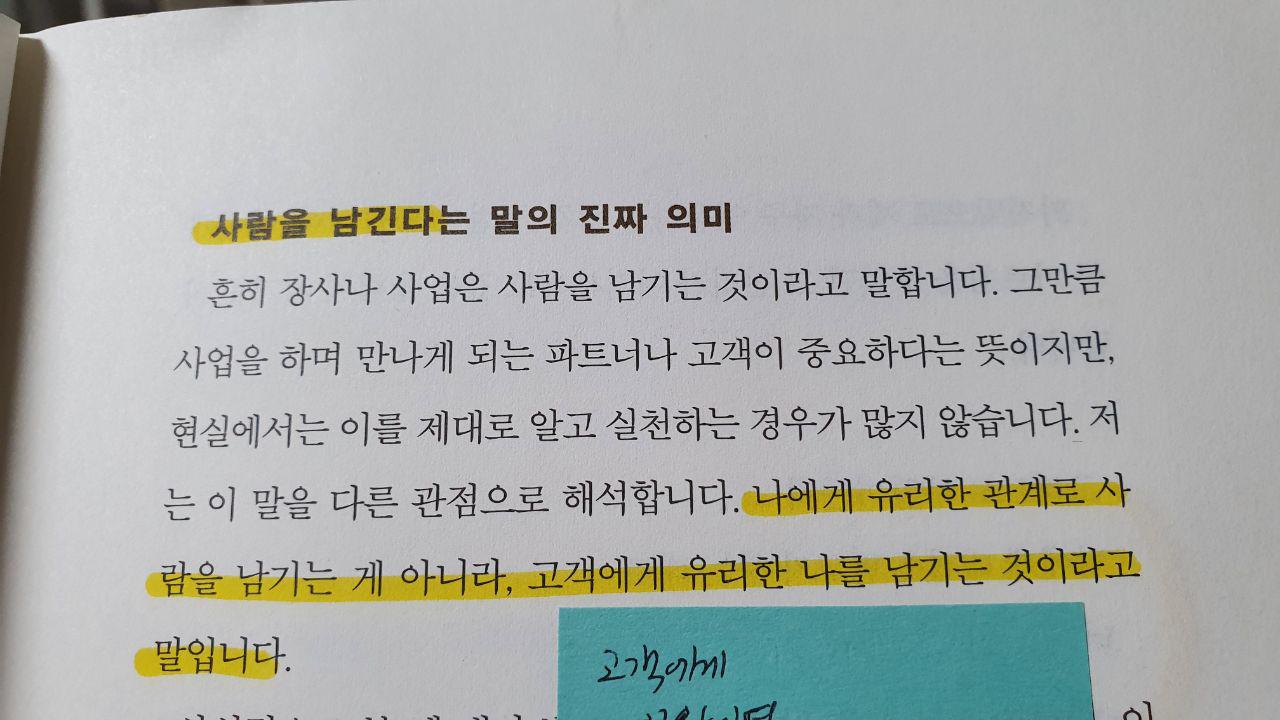 사람을 남긴다는 말의 진짜 의미
흔히 장사나 사업은 사람을 남기는 것이라고 말합니다. 그만큼
사업을 하며 만나게 되는 파트너나 고객이 중요하다는 뜻이지만,
현실에서는 이를 제대로 알고 실천하는 경우가 많지 않습니다. 저
는 이 말을 다른 관점으로 해석합니다. 나에게 유리한 관계로 사
람을 남기는 게 아니라, 고객에게 유리한 나를 남기는 것이라고
말입니다.
고객에게